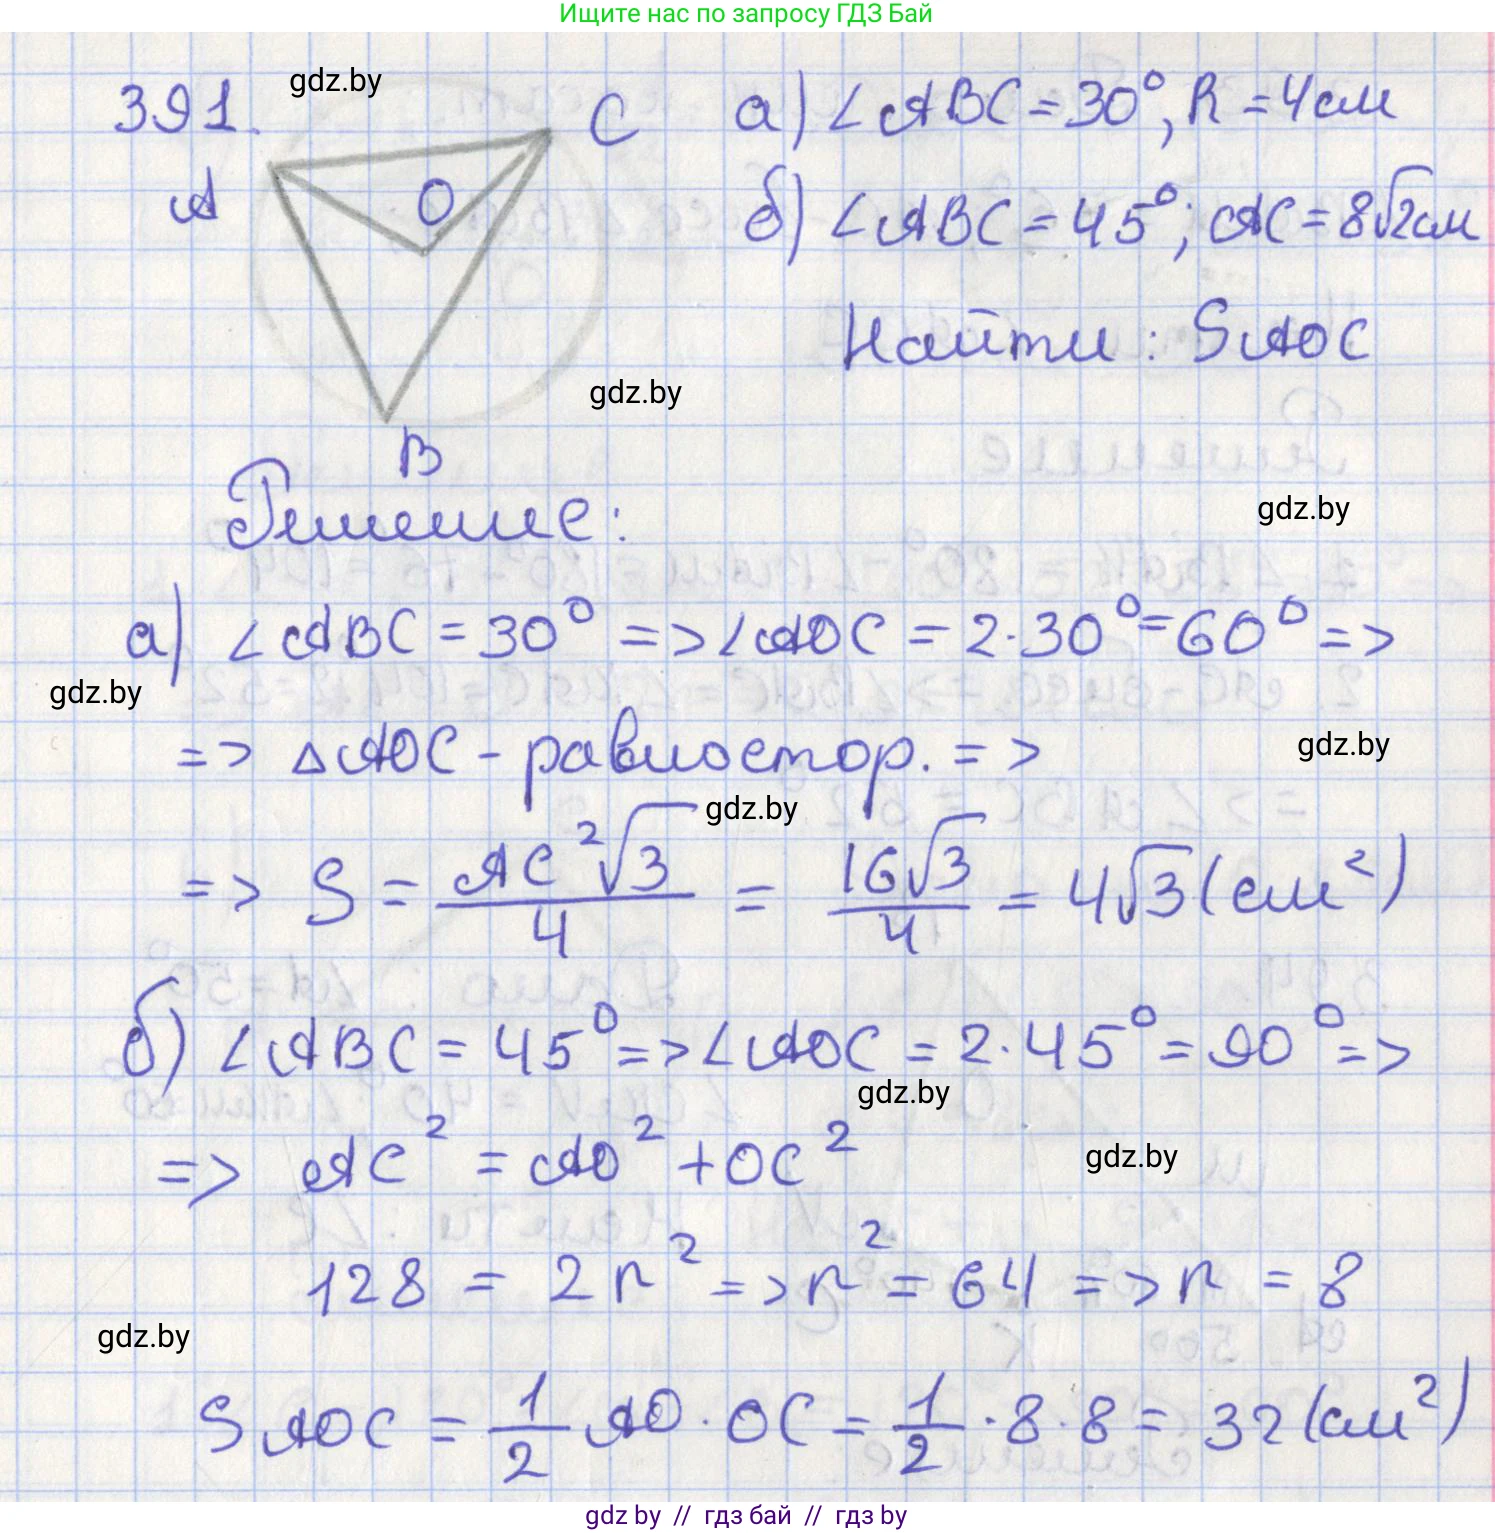 Ищите нас по запросу ГДЗ Бай
391.
gdz.by
C
а) ∠ABC = 30°, R = 4см
A
O
б) ∠ABC = 45°; AC = 8√2см
Найти: SAOC
gdz.by
B
Решение:
gdz.by
а) ∠ABC = 30° => ∠AOC = 2·30° = 60° =>
gdz.by
=> △AOC - равностор. =>
gdz.by
gdz.by
=> S = AC²√3/4 = 16√3/4 = 4√3 (см²)
б) ∠ABC = 45° => ∠AOC = 2·45° = 90° =>
gdz.by
=> AC² = AO² + OC²
gdz.by
128 = 2r² => r² = 64 => r = 8
gdz.by
SAOC = 1/2 AO · OC = 1/2 · 8 · 8 = 32 (см²)
gdz by // гдз бай // gdz by